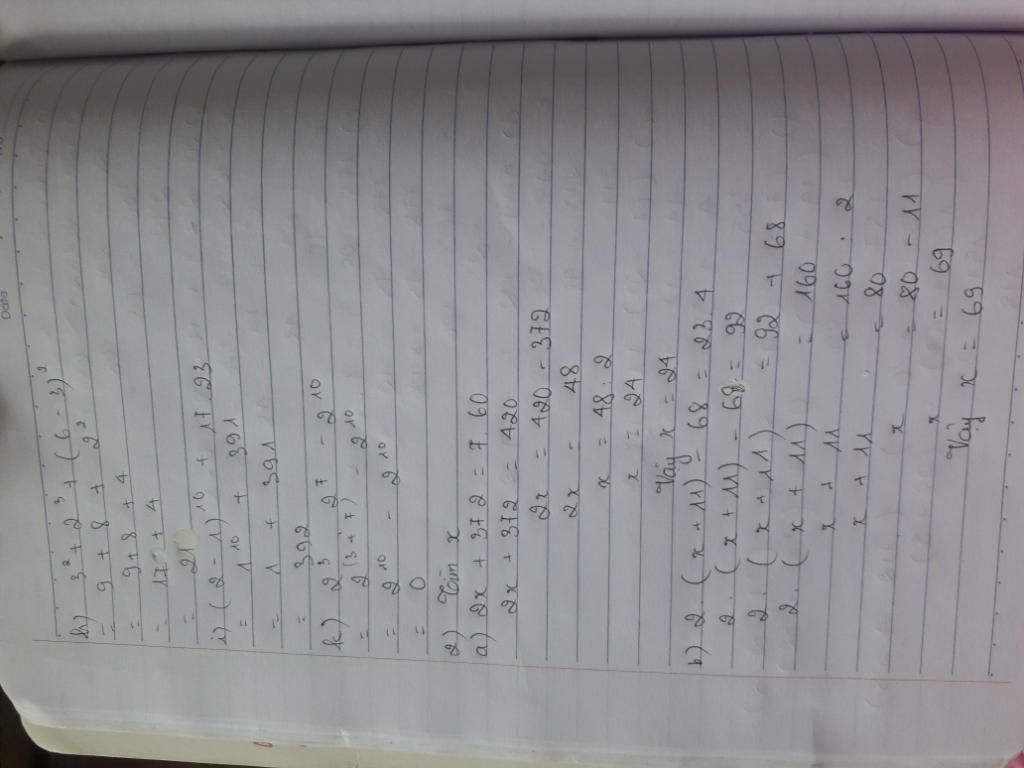 Date
h) 3² + 2³ + (6 - 3)²
= 9 + 8 + 2²
= 9 + 8 + 4
= 17 + 4
= 21
i) (2 - 1)¹⁰ + 17.23
= 1¹⁰ + 391
= 1 + 391
= 392
k) 2³ 2⁷ - 2¹⁰
= 2⁽³⁺⁷⁾ - 2¹⁰
= 2¹⁰ - 2¹⁰
= 0
2) Tìm x
a) 2x + 372 = 7 60
2x + 372 = 420
2x = 420 - 372
2x = 48
x = 48 : 2
x = 24
Vậy x = 24
b) 2 . (x + 11) - 68 = 23 4
2 . (x + 11) - 68 = 92
2 . (x + 11) = 92 + 68
2 . (x + 11) = 160
x + 11 = 160 : 2
x + 11 = 80
x = 80 - 11
x = 69
Vậy x = 69